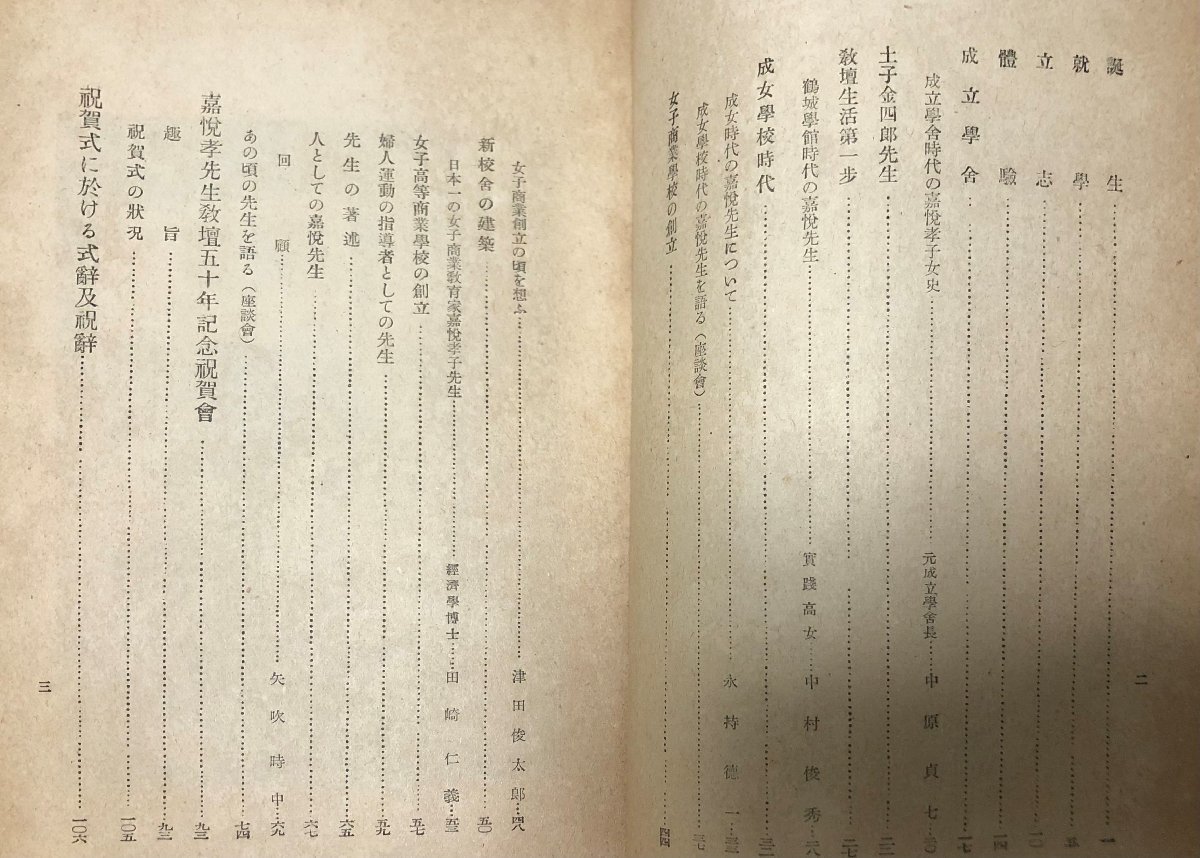 誕生……一
就學……五
立志……一〇
體驗……一四
成立學舍……一七
成立學舍時代の嘉悅孝子女史……元成立學舍長……中原貞七…二〇
土子金四郎先生……二三
敎壇生活第一步……二七
鶴城學館時代の嘉悅先生……實踐高女……中村俊秀…二八
成女學校時代……三二
成女時代の嘉悅先生について……永持德一…三三
成女學校時代の嘉悅先生を語る(座談會)……三七
女子商業學校の創立……四四
二
女子商業創立の頃を想ふ……津田俊太郞…四八
新校舍の建築……五〇
日本一の女子商業敎育家嘉悅孝子先生……經濟學博士……田崎仁義…五三
女子高等商業學校の創立……五七
婦人運動の指導者としての先生……五九
先生の著述……六五
人としての嘉悅先生……六七
回顧……矢吹時中…六九
あの頃の先生を語る(座談會)……七四
嘉悅孝先生敎壇五十年記念祝賀會……九三
趣旨……九三
祝賀式の狀況……一〇五
祝賀式に於ける式辭及祝辭……一〇六
三